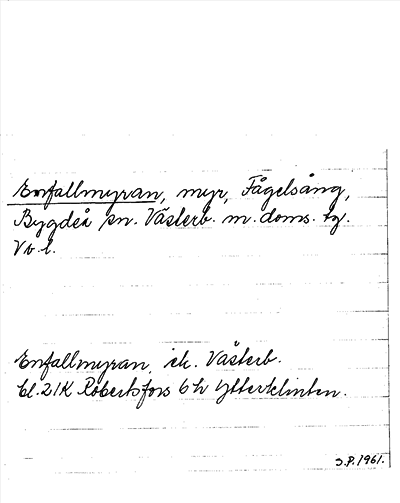 Enfallmyran, myr, Fågelsång,
Bygdeå sn. Västerb. m. doms. tg.
Vb. l.
Enfallmyran, ek. Västerb.
bl. 21K Robertsfors 6 h Ytterklinten.
S.P. 1961.